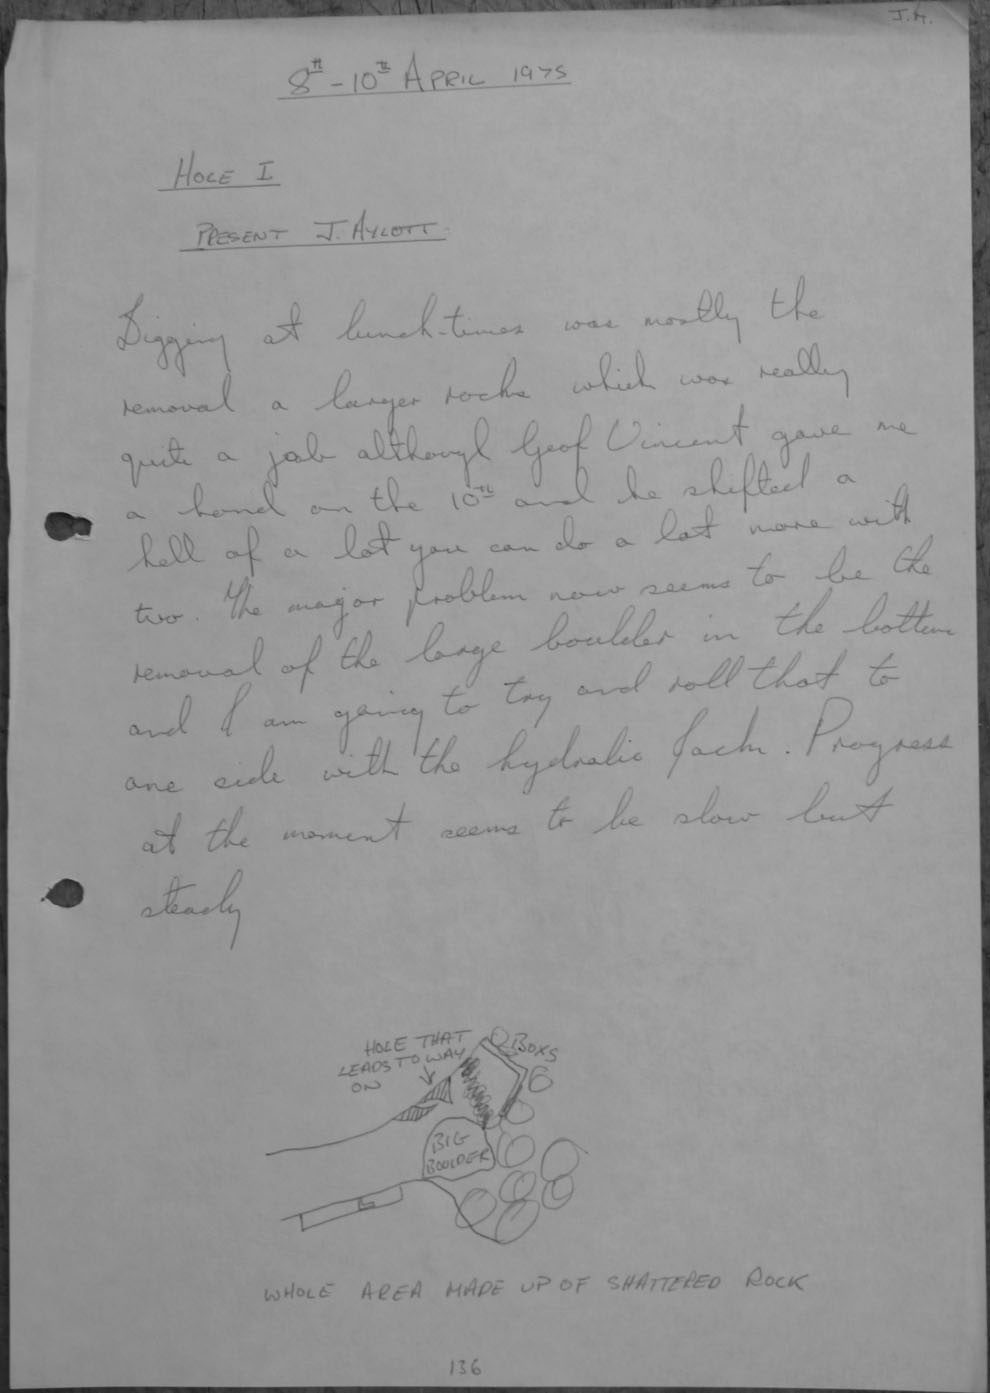 J.M.
8TH - 10TH APRIL 1975
HOLE I
PRESENT J. AYLOTT.
Digging at lunch-times was mostly the
removal a larger rocks which was really
quite a job althougl Geof Vincent gave me
a hand on the 10TH and he shifted a
hell of a lot you can do a lot more with
two. The major problem now seems to be the
removal of the large boulder in the bottom
and I am going to try and roll that to
one side with the hydralic Jack. Progress
at the moment seems to be slow but
steady
HOLE THAT
LEADS TO WAY
ON
BOXS
BIG
BOULDER
WHOLE AREA MADE UP OF SHATTERED ROCK
136